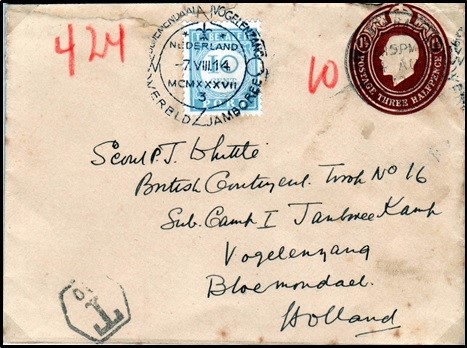 424
BLOEMENDAAL (VOGELENZANG)
NEDERLAND
-7.VIII.14
MCMXXXVII
3
WERELD JAMBOREE
10
5 PM
POSTAGE THREE HALFPENCE
Scout P. J. Whittle
British Contingent. Troop No 16
Sub. Camp I Jamboree Kamp
Vogelenzang
Bloemondael
Holland
T